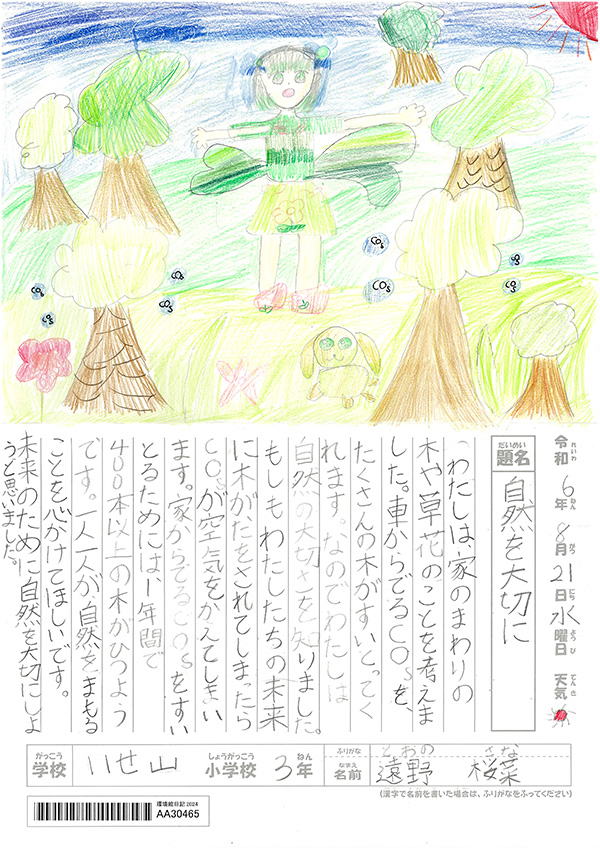 CO₅
CO₅
CO₅
CO₅
CO₅
CO₅
CO₅
CO₅
令和6年8月21日水曜日 天気
れいわ ねん がつ にち ようび てんき
だいめい
題名 自然を大切に
わたしは、家のまわりの
木や草花のことを考えま
した。車からでるCO₅を、
たくさんの木がすいとってく
れます。なのでわたしは
自然の大切さを知りました。
もしもわたしたちの未来
に木がたをされてしまったら
CO₅が空気をかえてしまい
ます。家からでるCO₅をすい
とるためには、1年間で
400本以上の木がひつよう
です。一人一人が、自然をまもる
ことを心がけてほしいです。
未来のために自然を大切にしよ
うと思いました。
がっこう しょうがっこう ねん ふりがな とおの さな
学校 いせ山 小学校 3年 なまえ 名前 遠野 桜菜
(漢字で名前を書いた場合は、ふりがなをふってください)
環境絵日記2024
AA30465